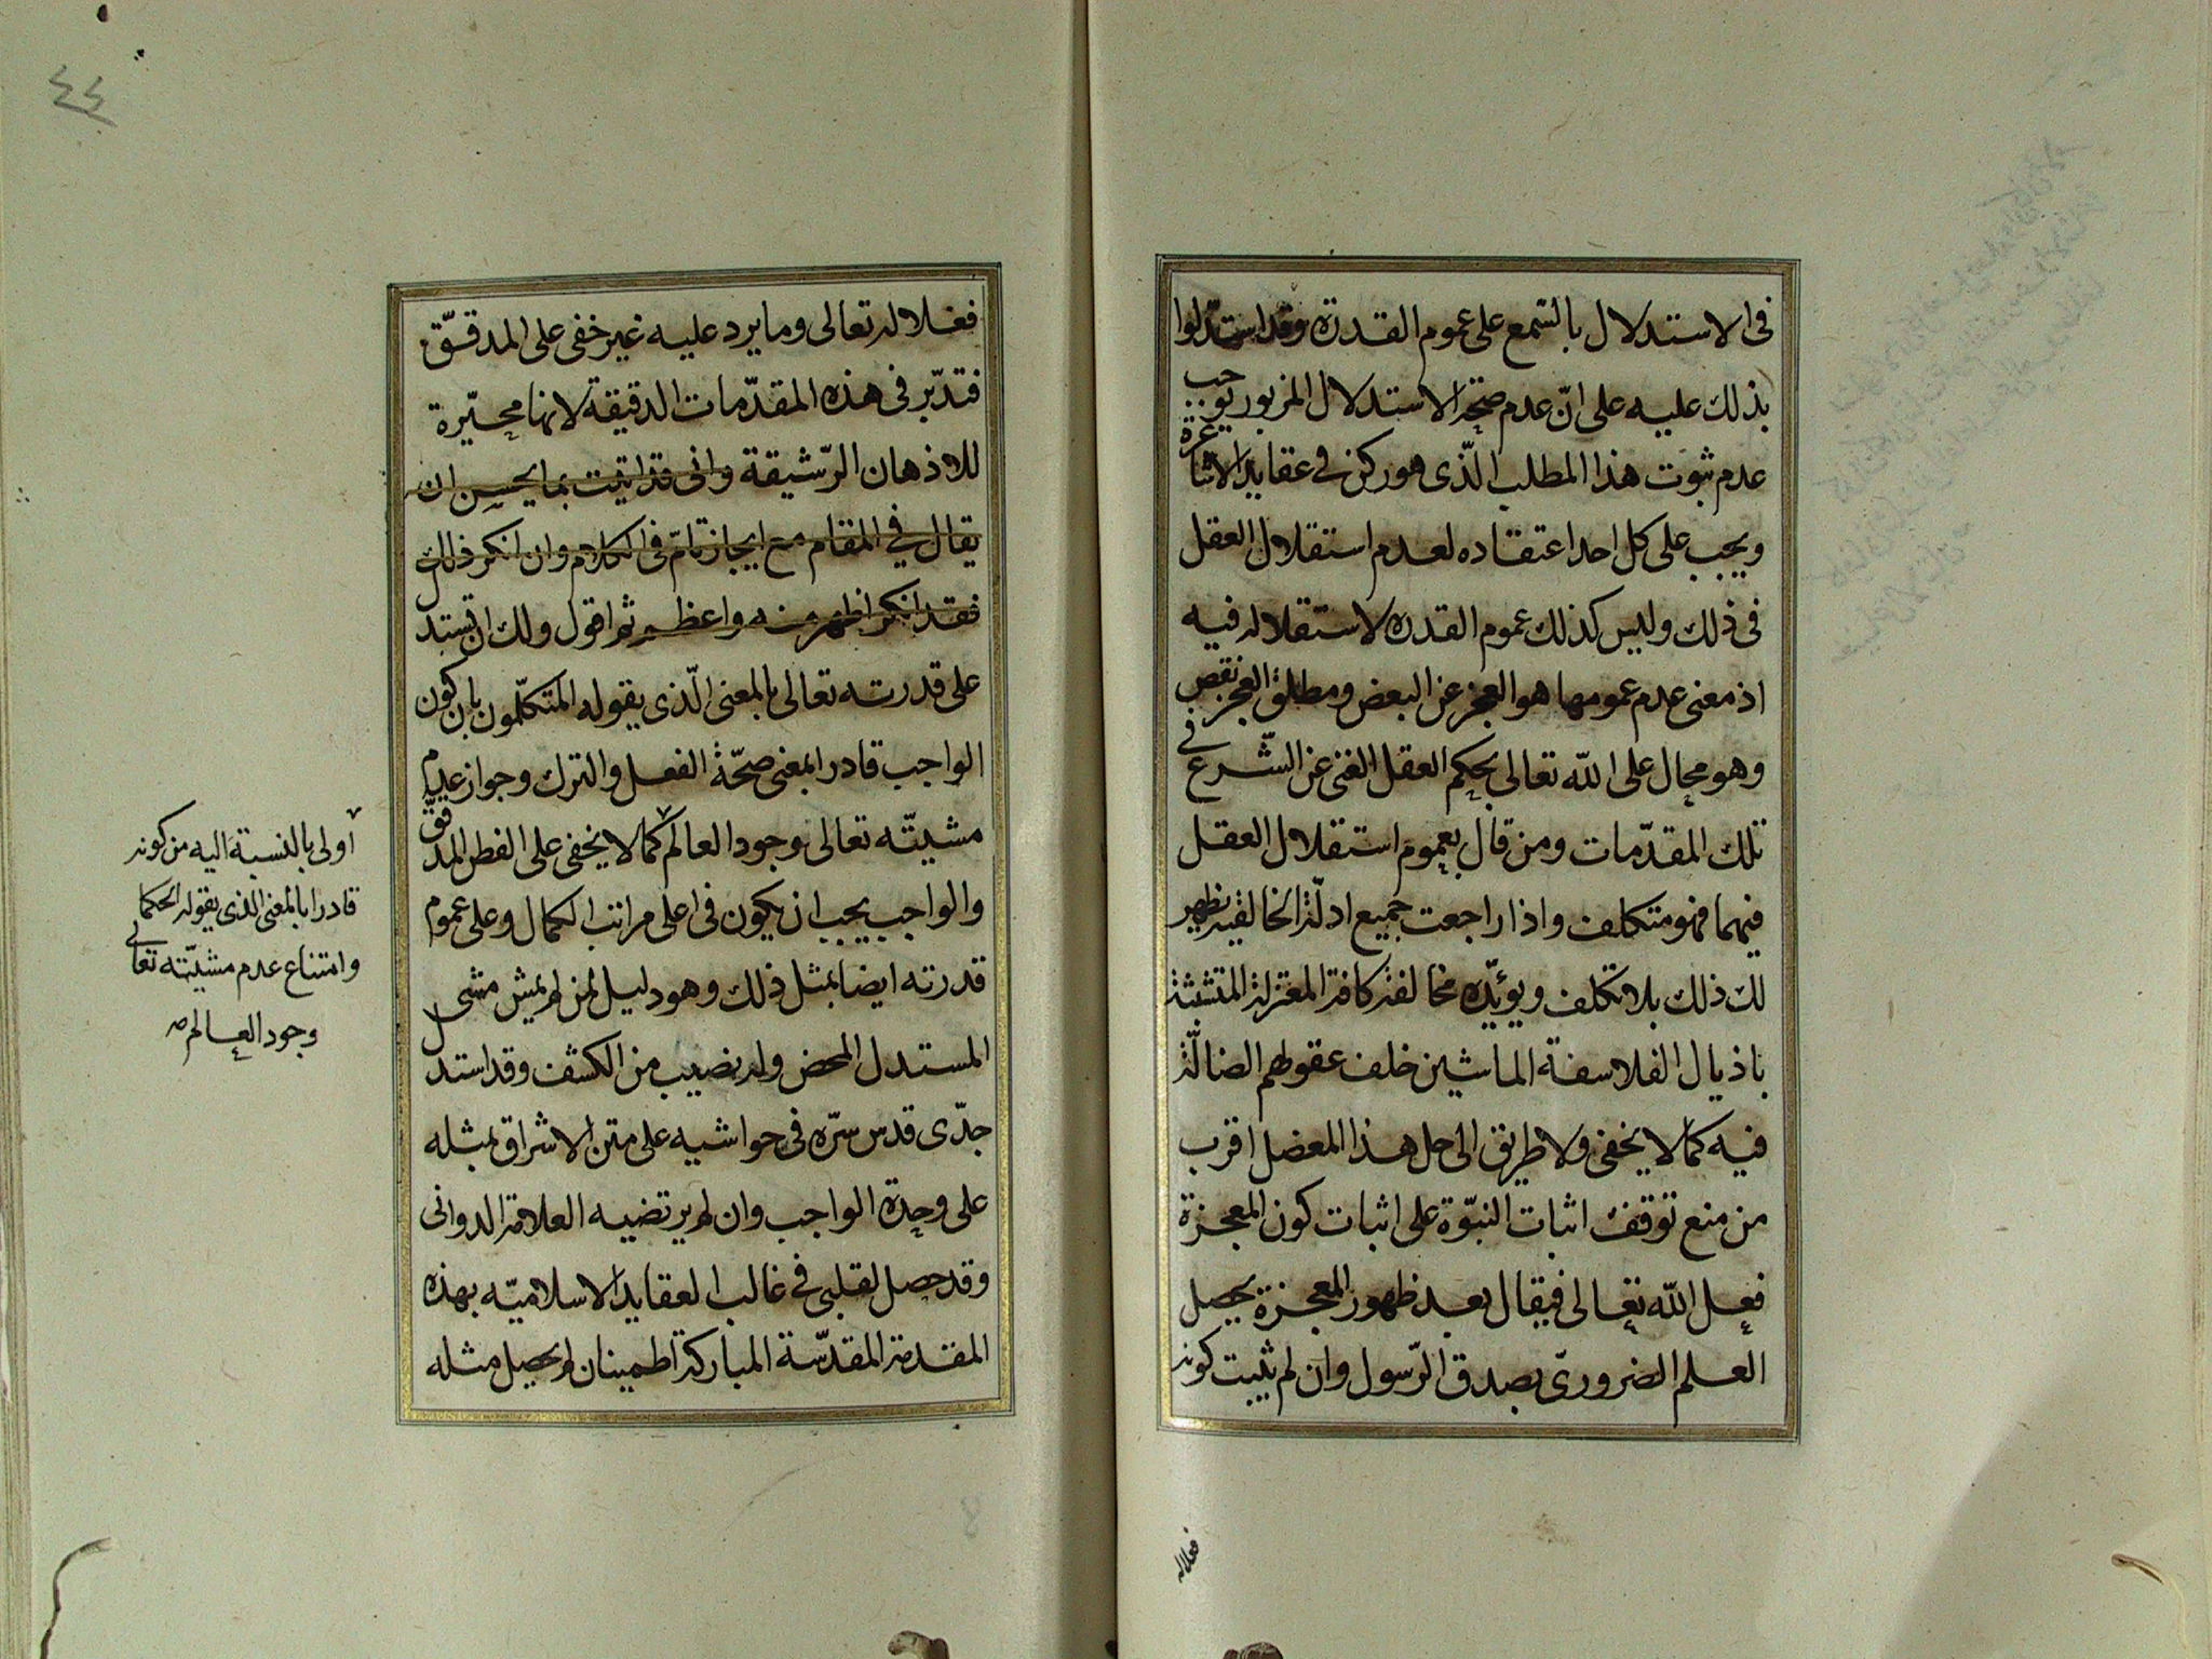 فى الاستدلال بالسّمع على عموم القدرة وقد استدلّوا
بذلك عليه على انّ عدم صحّة الاستدلال المزبور يوجب
عدم ثبوت هذا المطلب الّذى هو ركن فى عقايد الاشاعرة
ويجب على كل احد اعتقاده لعدم استقلال العقل
فى ذلك وليس كذلك عموم القدرة لاستقلاله فيه
اذ معنى عدم عمومها هو العجز عن البعض ومطلق العجز نقص
وهو محال على اللّه تعالى بحكم العقل الغنى عن الشّرع فى
تلك المقدّمات ومن قال بعموم استقلال العقل
فيهما فهو متكلف واذا راجعت جميع ادلّة الخالقيه يظهر
لك ذلك بلا تكلف ويؤيّده مخالفة كافة المعتزلة المتشبثة
باذيال الفلاسفة الماشين خلف عقولهم الضالّة
فيه كما لا يخفى ولا طريق الى حل هذا المعضل اقرب
من منع توقف اثبات النبوّة على اثبات كون المعجزة
فعل اللّه تعالى فيقال بعد ظهور المعجزة يحصل
العلم الضرورىّ بصدق الرّسول وان لم يثبت كونه
فعلاله
٤٤
فعلا له تعالى وما يرد عليه غير خفى على المدقّق
فتدبّر فى هذه المقدّمات الدقيقة لانها محيّرة
للاذهان الرّشيقة وانى قد اتيت بما يحسن ان
يقال فى المقام مع ايجاز تامّ فى الكلام وان انكر ذلك
فقد انكر اظهر منه واعظم ثم اقول ولك ان تستدل
على قدرته تعالى بالمعنى الّذى يقوله المتكلّمون بان كون
الواجب قادرا بمعنى صحّة الفعل والترك وجواز عدم
مشيّته تعالى وجود العالم كما لا يخفى على الفطن المدقق
والواجب يجب ان يكون فى اعلى مراتب الكمال وعلى عموم
قدرته ايضا بمثل ذلك وهو دليل لمن لم يمش مشى
المستدل المحض وله نصيب من الكشف وقد استدل
جدّى قدس سرّه فى حواشيه على متن الاشراق بمثله
على وحدة الواجب وان لم يرتضيه العلامة الدوانى
وقد حصل لقلبى فى غالب العقايد الاسلاميّه بهذه
المقدمة المقدّسة المباركة اطمينان لم يحصل مثله
اولى بالنسبة اليه من كونه
قادرا بالمعنى الذى يقوله الحكما
وامتناع عدم مشيّته تعالى
وجود العالم صح